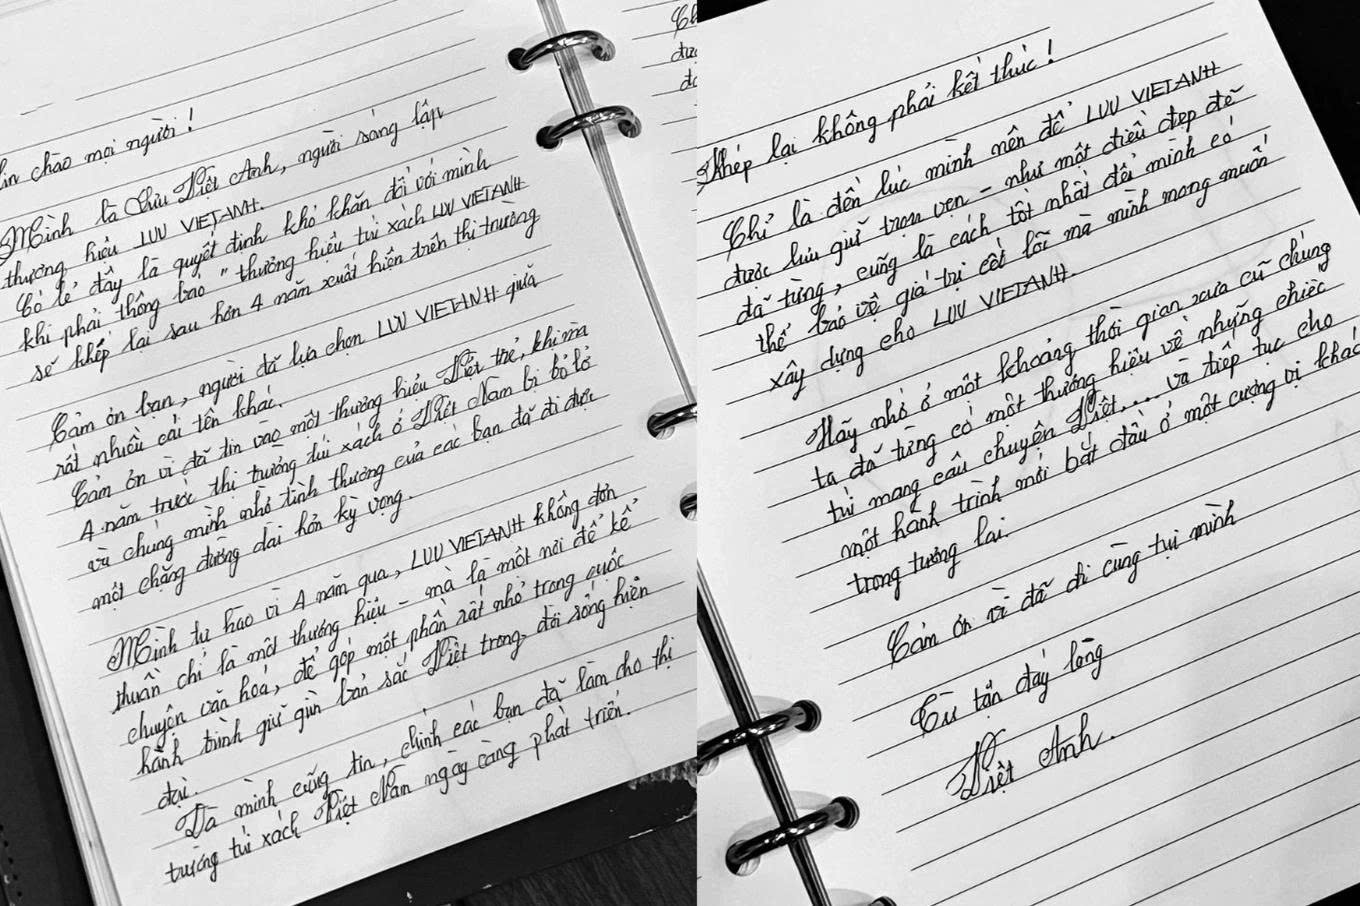 chào mọi người!
Mình là Lưu Việt Anh, người sáng lập
thương hiệu LUU VIETANH.
Có lẽ đây là quyết định khó khăn đối với mình
khi phải thông báo "thương hiệu túi xách LUU VIETANH
sẽ khép lại sau hơn 4 năm xuất hiện trên thị trường
Cảm ơn bạn, người đã lựa chọn LUU VIETANH giữa
rất nhiều cái tên khác.
Cảm ơn vì đã tin vào một thương hiệu Việt trẻ, khi mà
4 năm trước thị trường túi xách ở Việt Nam bị bỏ lỡ
và chúng mình nhờ tình thương của các bạn đã đi được
một chặng đường dài hơn kỳ vọng.
Mình tự hào vì 4 năm qua, LUU VIETANH không đơn
thuần chỉ là một thương hiệu - mà là một nơi để kể
chuyện văn hoá, để góp một phần rất nhỏ trong cuộc
hành trình giữ gìn bản sắc Việt trong đời sống hiện
đại.
Và mình cũng tin, chính các bạn đã làm cho thị
trường túi xách Việt Nam ngày càng phát triển.
Khép lại không phải kết thúc!
Chỉ là đến lúc mình nên để LUU VIETANH
được lưu giữ trọn vẹn - như một điều đẹp đẽ
đã từng, cũng là cách tốt nhất để mình có
thể bảo vệ giá trị cốt lõi mà mình mong muốn
xây dựng cho LUU VIETANH.
Hãy nhớ ở một khoảng thời gian xưa cũ chúng
ta đã từng có một thương hiệu về những chiếc
túi mang câu chuyện Việt..... và tiếp tục cho
một hành trình mới bắt đầu ở một cương vị khác
trong tương lai.
Cảm ơn vì đã đi cùng tụi mình
Từ tận đáy lòng
Việt Anh.